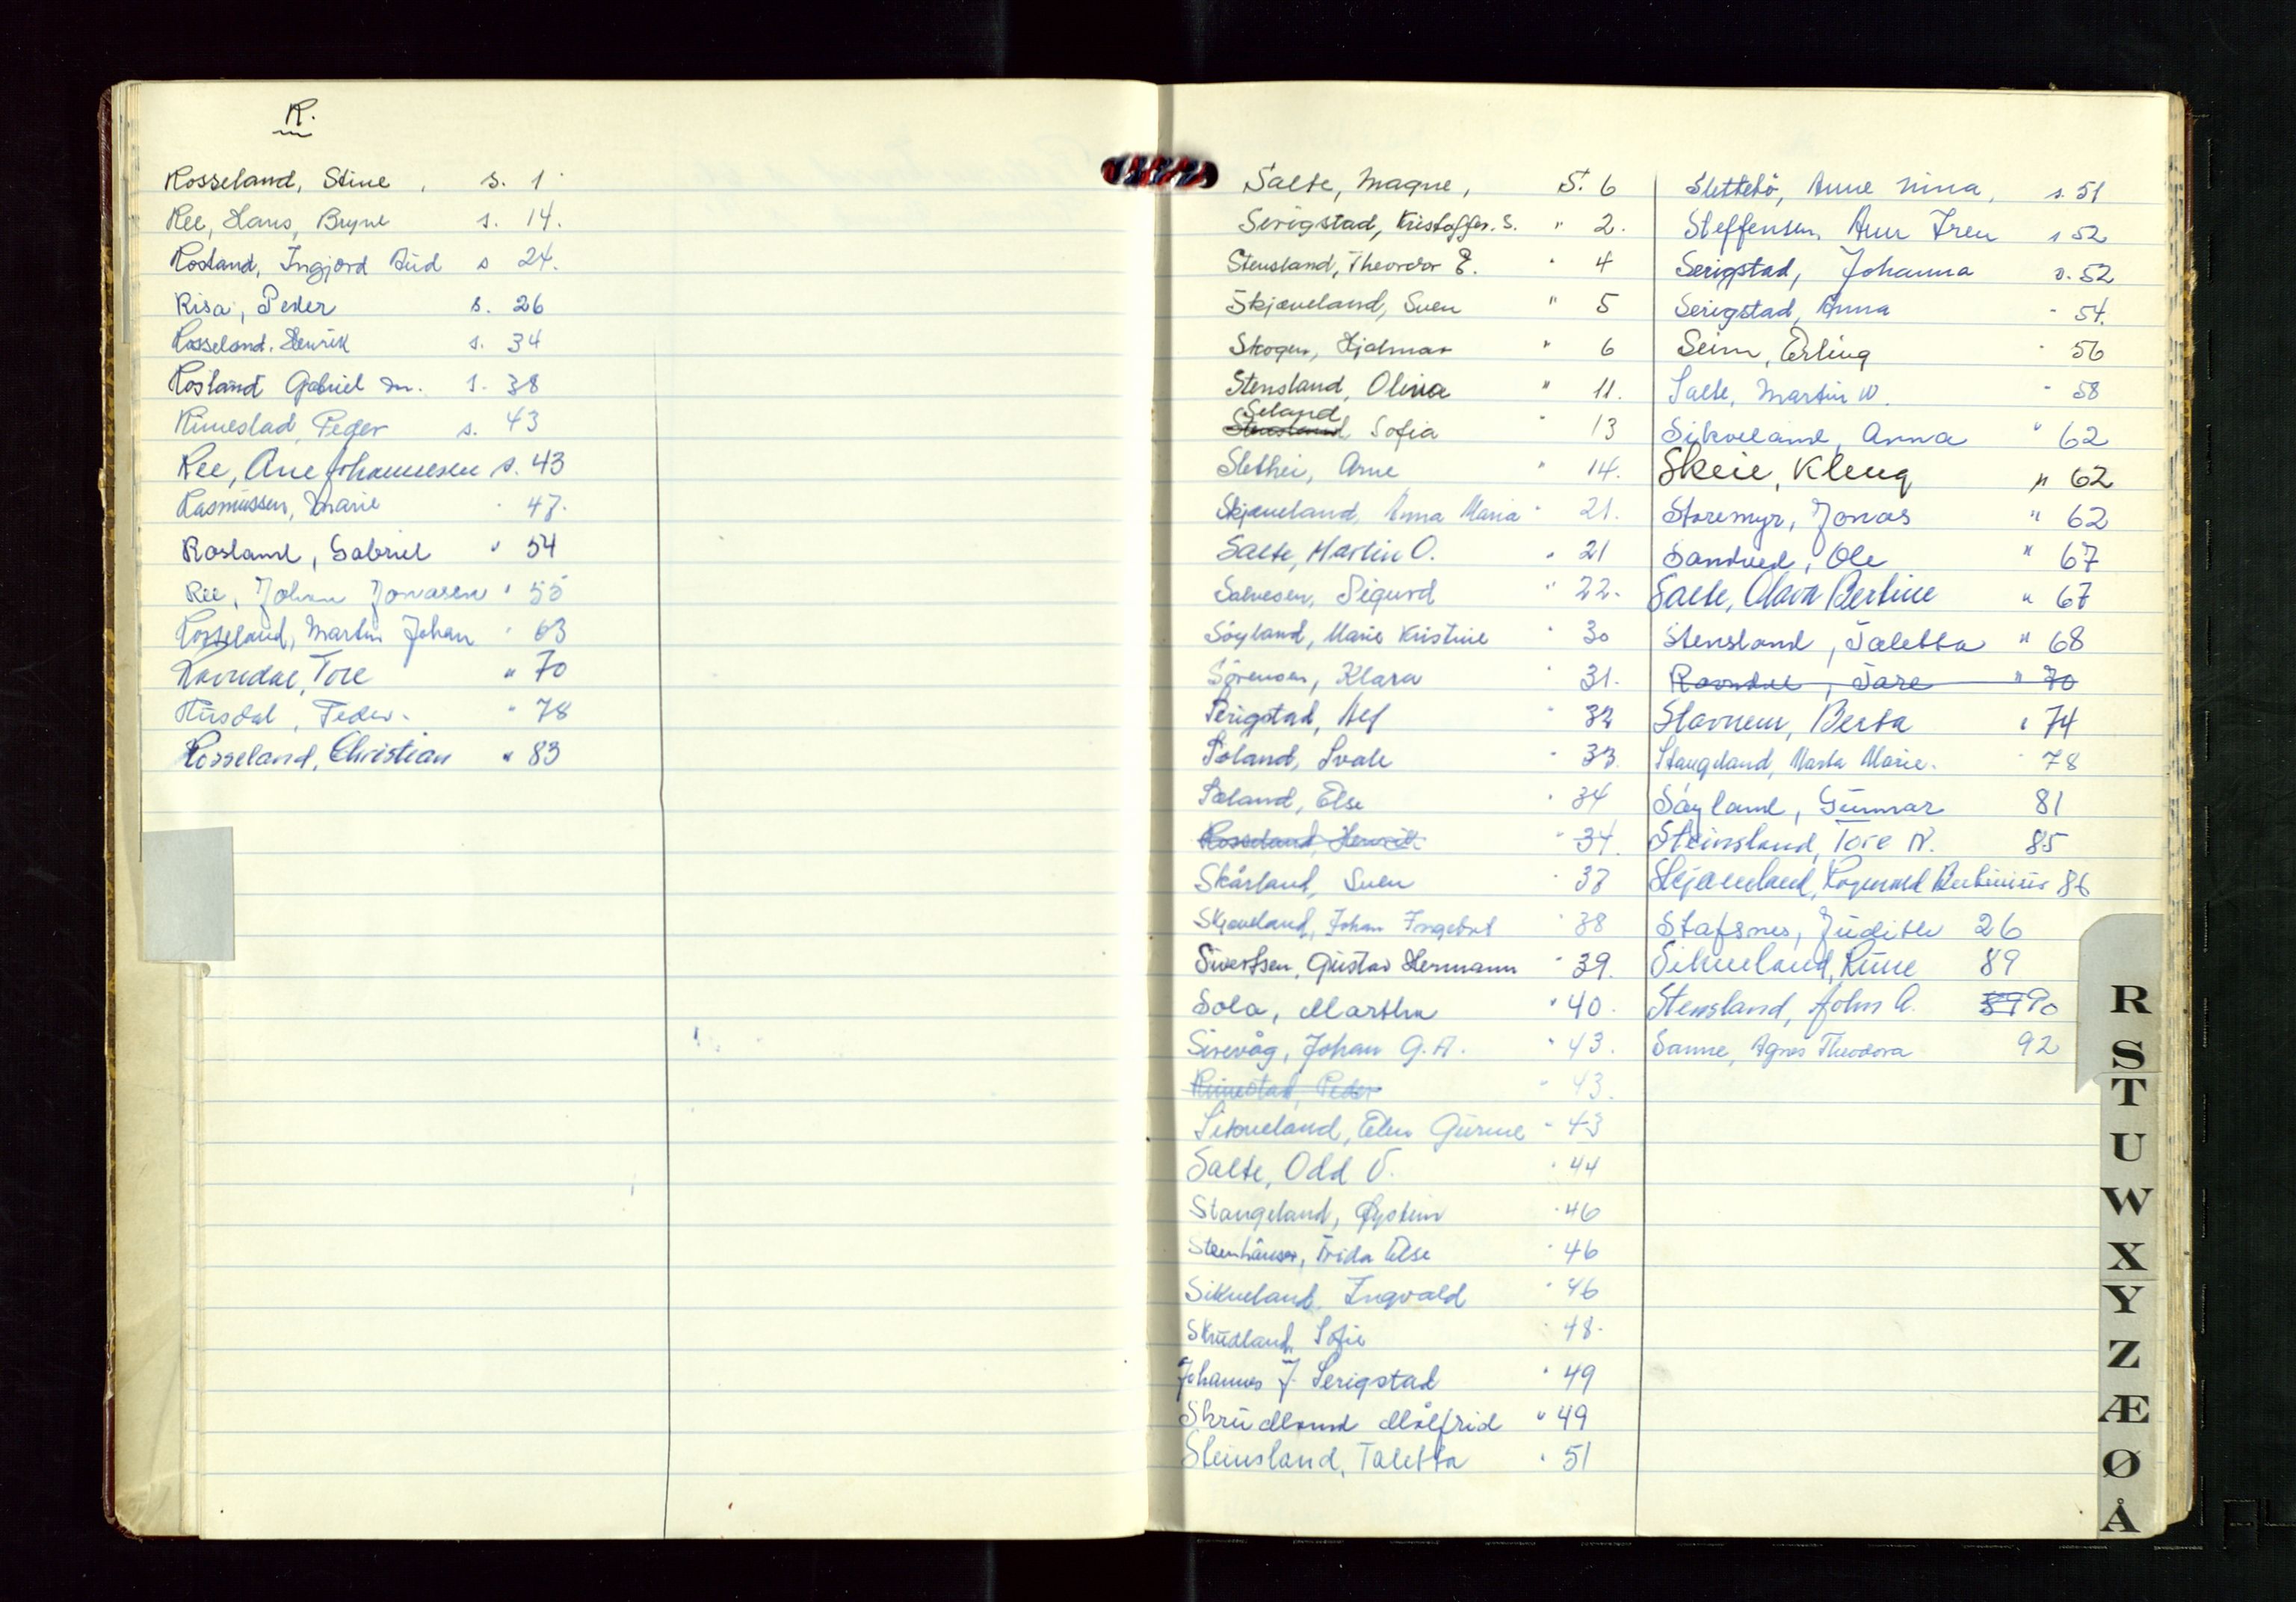 R.
Rosseland, Stine, s. 1
Ree, Hans, Bryne s. 14.
Rosland, Ingjerd Aud s 24.
Risa, Peder s. 26
Rosseland, Henrik s. 34
Rosland Gabriel M. s. 38
Rimestad, Peder s. 43
Ree, Ane Johannesen s. 43
Rasmussen, Marie " 47.
Rosland, Gabriel " 54
Ree, Johan Jonasen " 55
Rosseland, Martin Johan " 63
Ravndal, Tore " 70
Rusdal, Peder. " 78
Rosseland, Christian " 83
Salte, Magne, S. 6
Serigstad, Kristoffer. S. " 2.
Stensland, Theodor E. " 4
Skjæveland, Sven " 5
Skogen, Hjalmar " 6
Stensland, Olina " 11.
Seland
Stensland Sofia " 13
Slethei, Arne " 14.
Skjæveland, Anna Maria " 21.
Salte, Martin O. " 21
Salvesen, Sigurd " 22.
Søyland, Marie Kristine " 30
Sørensen, Klara " 31.
Serigstad, Alf " 32
Soland, Svale " 33.
Søland, Else " 34
Rosseland, Henrik " 34.
Skårland, Sven " 37
Skjæveland, Johan Ingebret " 38
Sivertsen, Gustav Hermann " 39.
Sola, Martha " 40.
Sirevåg, Johan G. A. " 43.
Rimestad, Peder " 43.
Sikveland, Elen Gurine " 43
Salte, Odd V. " 44
Stangeland, Øystein " 46
Steinhäuser, Frida Else " 46
Sikveland Ingvald " 46
Skrudland, Sofie " 48.
Johannes J. Serigstad " 49
Skrudland Målfrid " 49
Steinsland, Taletta " 51
Slettebø, Anne Nina, s. 51
Steffensen, Ann Iren s 52
Serigstad, Johanna s. 52
Serigstad, Anna " 54.
Seim, Erling " 56
Salte, Martin W. " 58
Sikveland, Anna " 62
Skeie, Kleng " 62
Storemyr, Jonas " 62
Sandved, Ole " 67
Salte, Olava Bertine " 67
Stensland, Taletta " 68
Ravndal, Tore " 70
Stavnem, Berta " 74
Stangeland, Marta Marie. " 78
Søyland, Gunnar 81
Steinsland, Tore N. 85
Skjæveland, Rognvald Bertinius 86
Stafsnes, Judith 26
Sikveland, Rune 89
Stensland, John A. 89 90
Sanne, Agnes Theodora 92
R
S
T
U
W
X
Y
Z
Æ
Ø
Å